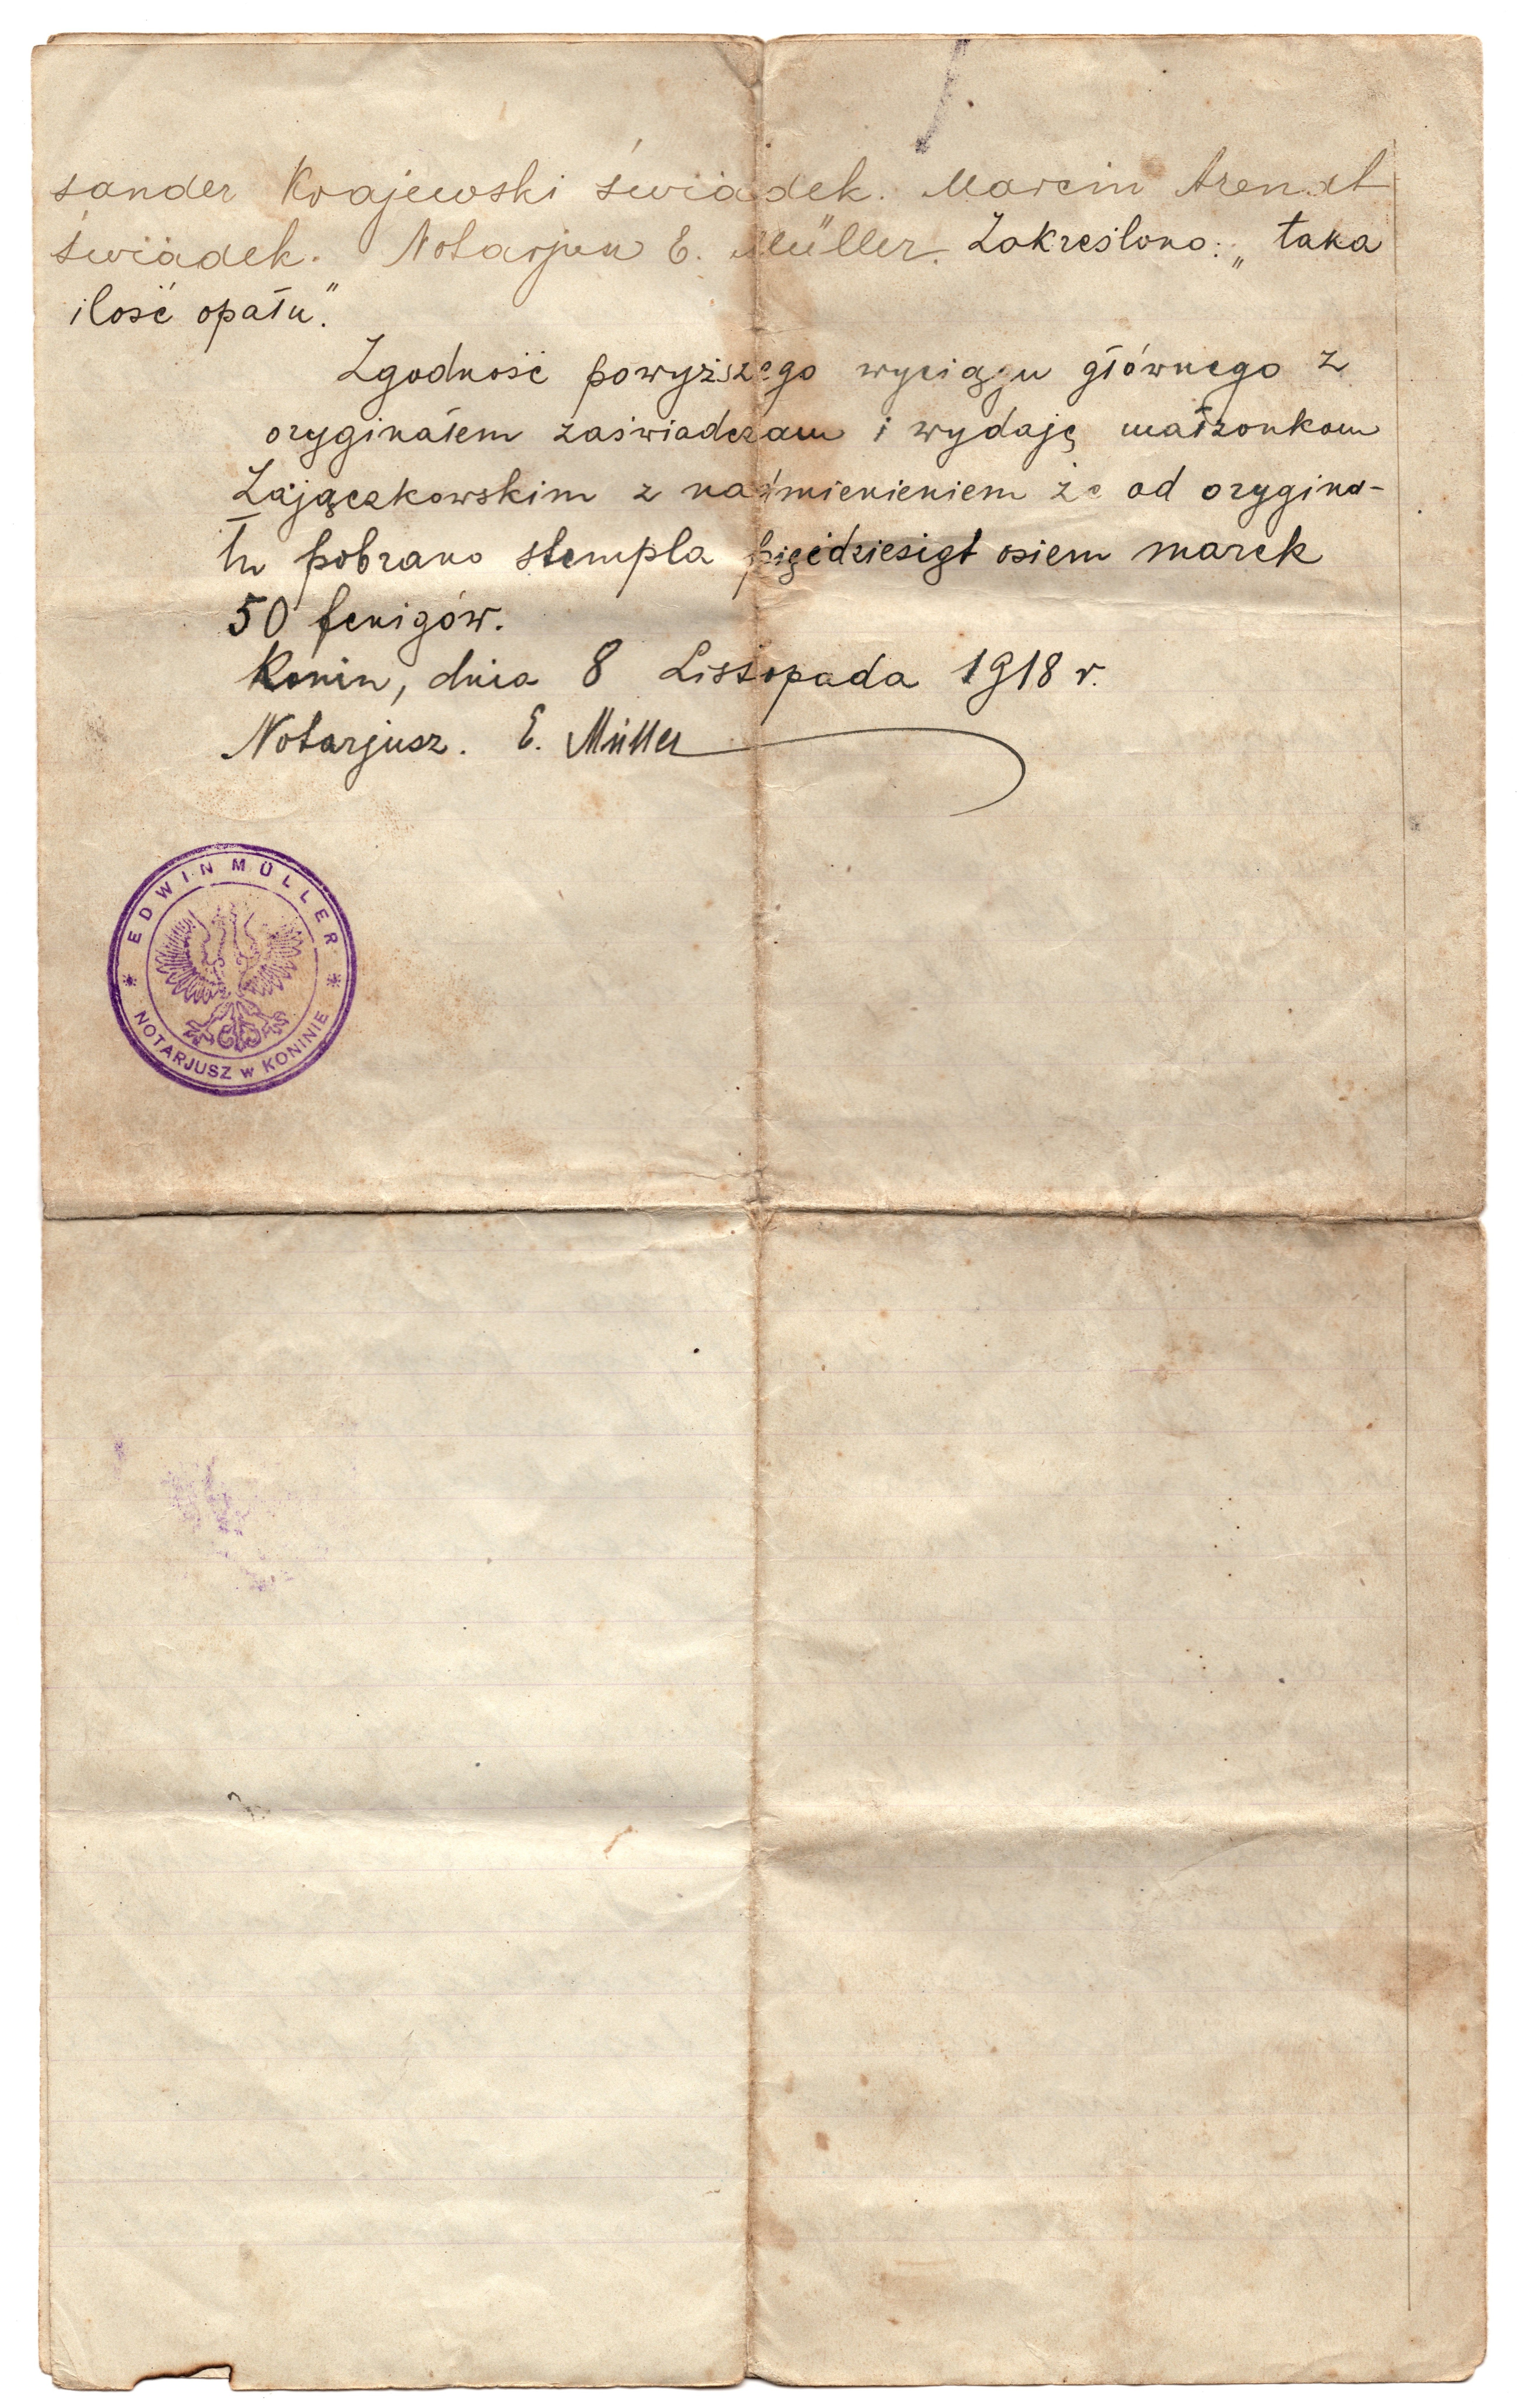 sander Krajewski świadek. Marcin Arendt
świadek. Notarjusz E. Müller. Zakreślono: „taka
ilość opału".
Zgodność powyższego wyciągu głównego z
oryginałem zaświadczam i wydaję małżonkom
Zajączkowskim z nadmienieniem że od orygina-
łu pobrano stempla pięćdziesiąt osiem marek
50 fenigów.
Konin, dnia 8 Listopada 1918 r.
Notarjusz. E. Müller
EDWIN MÜLLER
* NOTARJUSZ w KONINIE *